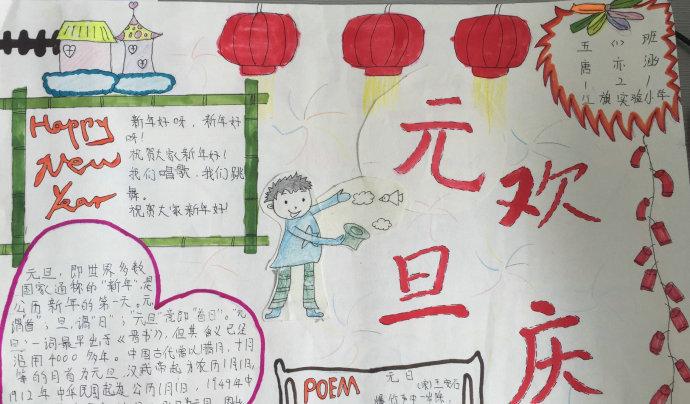 Happy
New
Year
新年好呀，新年好
呀！
祝贺大家新年好！
我们唱歌，我们跳
舞。
祝贺大家新年好！
五（2）班
唐亦涵
八旗实验小学
元旦
欢庆
元旦，即世界多数
国家通称的“新年”，是
公历新年的第一天。元，
谓“首”；旦，谓“日”；“元旦”意即“首日”。“元
旦”一词最早出于《晋书》，但其含义已
沿用4000多年。中国古代曾以腊月、十月
等的月首为元旦，汉武帝起为农历1月1日，
1912年中华民国起为公历1月1日，1949年中
POEM
元日
（宋）王安石
爆竹声中一岁除，